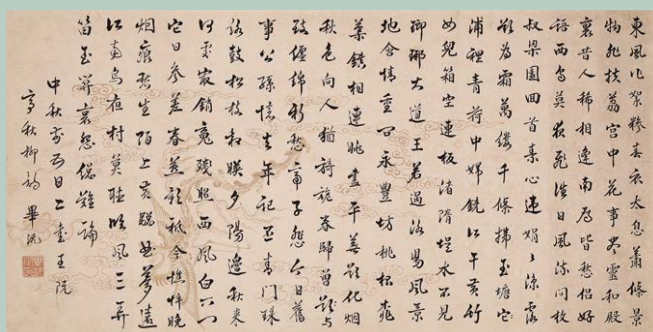 東風作絮糝春衣太息蕭條景
物非扶荔宮中花事盡靈和殿
裏昔人稀相逢南雁皆愁侶好
語西烏莫夜飛往日風流問枚
叔梁園回首素心違娟娟涼露
欲為霜萬縷千條拂玉塘
浦裡青荷中婦鏡江干黃竹
女兒箱空憐板渚隋堤水不見
瑯琊大道王若過洛陽風景
地含情重問永豐坊桃根桃
葉鎮相連眺盡平蕪欲化烟
秋色向人猶旖旎春歸曾與
致纏綿新愁帝子悲今日舊
事公孫憶去年記否青門珠
絡鼓松枝相映夕陽邊秋來
何處最銷魂殘照西風白下門
它日參差春燕影祗今憔悴晚
烟痕愁生陌上黃驄曲夢遠
江南烏夜村莫聽臨風三弄
笛玉關哀怨總難論
中秋前五日王阮
亭秋柳詩 畢沅